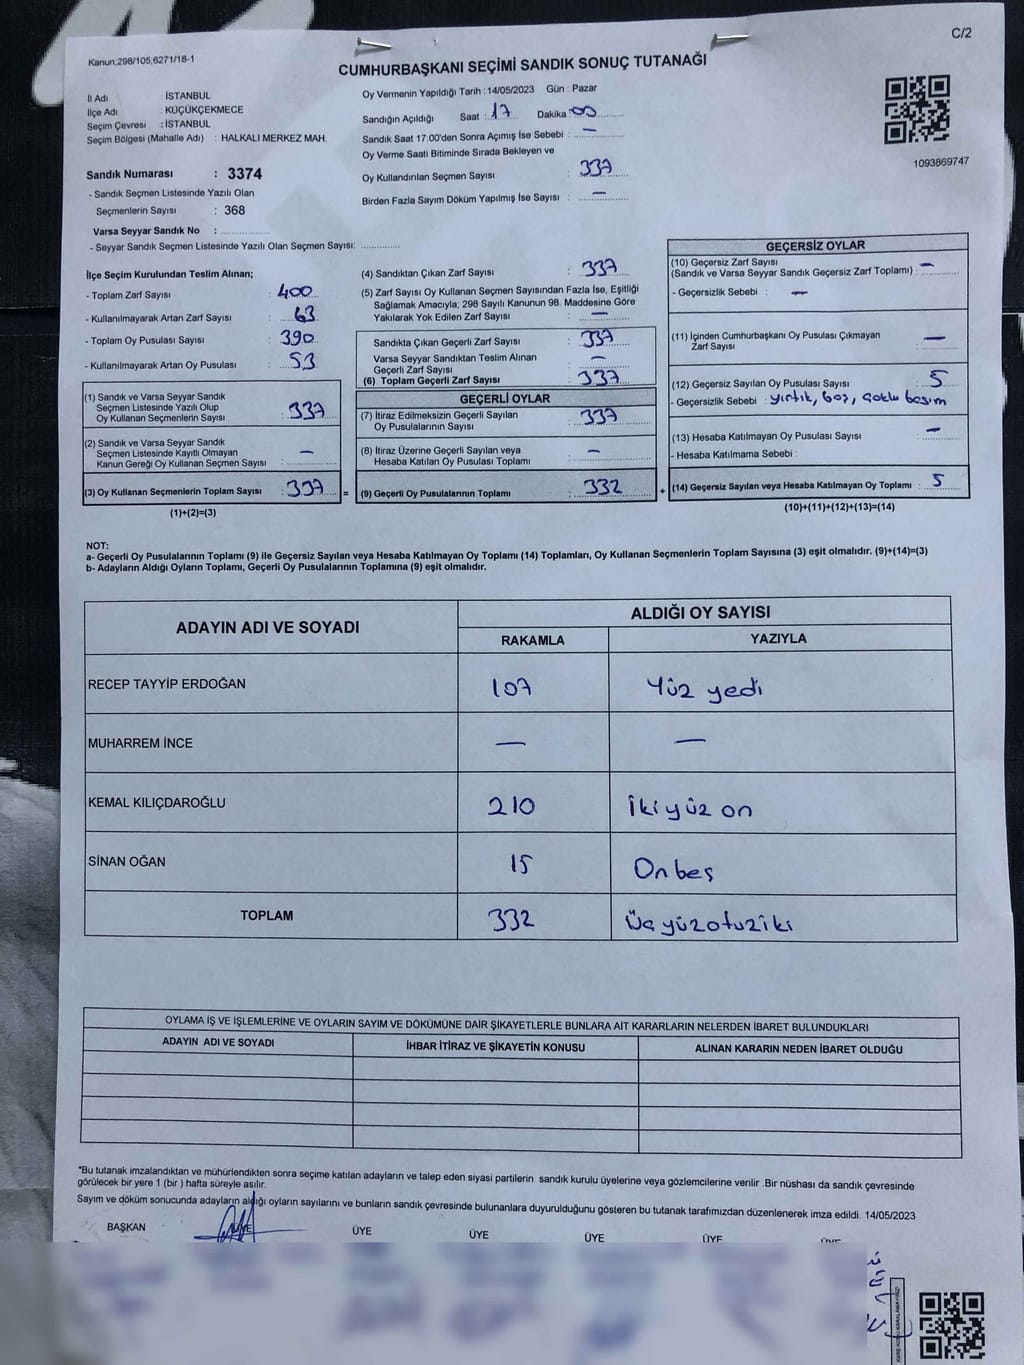 C/2
Kanun;298/105,6271/18-1
CUMHURBAŞKANI SEÇİMİ SANDIK SONUÇ TUTANAĞI
İl Adı : İSTANBUL
İlçe Adı : KÜÇÜKÇEKMECE
Seçim Çevresi : İSTANBUL
Seçim Bölgesi (Mahalle Adı) : HALKALI MERKEZ MAH.
Sandık Numarası : 3374
- Sandık Seçmen Listesinde Yazılı Olan
Seçmenlerin Sayısı : 368
Varsa Seyyar Sandık No : ...............
- Seyyar Sandık Seçmen Listesinde Yazılı Olan Seçmen Sayısı: ............
Oy Vermenin Yapıldığı Tarih : 14/05/2023 Gün : Pazar
Sandığın Açıldığı Saat : 17 Dakika : 00
Sandık Saat 17.00'den Sonra Açımış İse Sebebi : —
Oy Verme Saati Bitiminde Sırada Bekleyen ve
Oy Kullandırılan Seçmen Sayısı : 337
Birden Fazla Sayım Döküm Yapılmış İse Sayısı : —
1093869747
İlçe Seçim Kurulundan Teslim Alınan;
- Toplam Zarf Sayısı : 400
- Kullanılmayarak Artan Zarf Sayısı : 63
- Toplam Oy Pusulası Sayısı : 390
- Kullanılmayarak Artan Oy Pusulası : 53
(1) Sandık ve Varsa Seyyar Sandık
Seçmen Listesinde Yazılı Olup
Oy Kullanan Seçmenlerin Sayısı : 337
(2) Sandık ve Varsa Seyyar Sandık
Seçmen Listesinde Kayıtlı Olmayan
Kanun Gereği Oy Kullanan Seçmen Sayısı : —
(3) Oy Kullanan Seçmenlerin Toplam Sayısı : 337 =
(1)+(2)=(3)
(4) Sandıktan Çıkan Zarf Sayısı : 337
(5) Zarf Sayısı Oy Kullanan Seçmen Sayısından Fazla İse, Eşitliği
Sağlamak Amacıyla; 298 Sayılı Kanunun 98. Maddesine Göre
Yakılarak Yok Edilen Zarf Sayısı : —
Sandıkta Çıkan Geçerli Zarf Sayısı : 337
Varsa Seyyar Sandıktan Teslim Alınan
Geçerli Zarf Sayısı : —
(6) Toplam Geçerli Zarf Sayısı : 337
GEÇERLİ OYLAR
(7) İtiraz Edilmeksizin Geçerli Sayılan
Oy Pusulalarının Sayısı : 337
(8) İtiraz Üzerine Geçerli Sayılan veya
Hesaba Katılan Oy Pusulası Toplamı : —
(9) Geçerli Oy Pusulalarının Toplamı : 332 +
GEÇERSİZ OYLAR
(10) Geçersiz Zarf Sayısı
(Sandık ve Varsa Seyyar Sandık Geçersiz Zarf Toplamı) : —
- Geçersizlik Sebebi : —
(11) İçinden Cumhurbaşkanı Oy Pusulası Çıkmayan
Zarf Sayısı : —
(12) Geçersiz Sayılan Oy Pusulası Sayısı : 5
- Geçersizlik Sebebi : yırtık, boş, çoklu basım
(13) Hesaba Katılmayan Oy Pusulası Sayısı : —
- Hesaba Katılmama Sebebi :
(14) Geçersiz Sayılan veya Hesaba Katılmayan Oy Toplamı : 5
(10)+(11)+(12)+(13)=(14)
NOT:
a- Geçerli Oy Pusulalarının Toplamı (9) ile Geçersiz Sayılan veya Hesaba Katılmayan Oy Toplamı (14) Toplamları, Oy Kullanan Seçmenlerin Toplam Sayısına (3) eşit olmalıdır. (9)+(14)=(3)
b- Adayların Aldığı Oyların Toplamı, Geçerli Oy Pusulalarının Toplamına (9) eşit olmalıdır.
ADAYIN ADI VE SOYADI ALDIĞI OY SAYISI
RAKAMLA YAZIYLA
RECEP TAYYİP ERDOĞAN 107 Yüz yedi
MUHARREM İNCE — —
KEMAL KILIÇDAROĞLU 210 İkiyüz on
SİNAN OĞAN 15 Onbeş
TOPLAM 332 Üçyüzotuziki
OYLAMA İŞ VE İŞLEMLERİNE VE OYLARIN SAYIM VE DÖKÜMÜNE DAİR ŞİKAYETLERLE BUNLARA AİT KARARLARIN NELERDEN İBARET BULUNDUKLARI
ADAYIN ADI VE SOYADI İHBAR İTİRAZ VE ŞİKAYETİN KONUSU ALINAN KARARIN NEDEN İBARET OLDUĞU
*Bu tutanak imzalandıktan ve mühürlendikten sonra seçime katılan adayların ve talep eden siyasi partilerin sandık kurulu üyelerine veya gözlemcilerine verilir .Bir nüshası da sandık çevresinde
görülecek bir yere 1 (bir ) hafta süreyle asılır.
Sayım ve döküm sonucunda adayların aldığı oyların sayılarını ve bunların sandık çevresinde bulunanlara duyurulduğunu gösteren bu tutanak tarafımızdan düzenlenerek imza edildi. 14/05/2023
BAŞKAN ÜYE ÜYE ÜYE ÜYE ÜYE